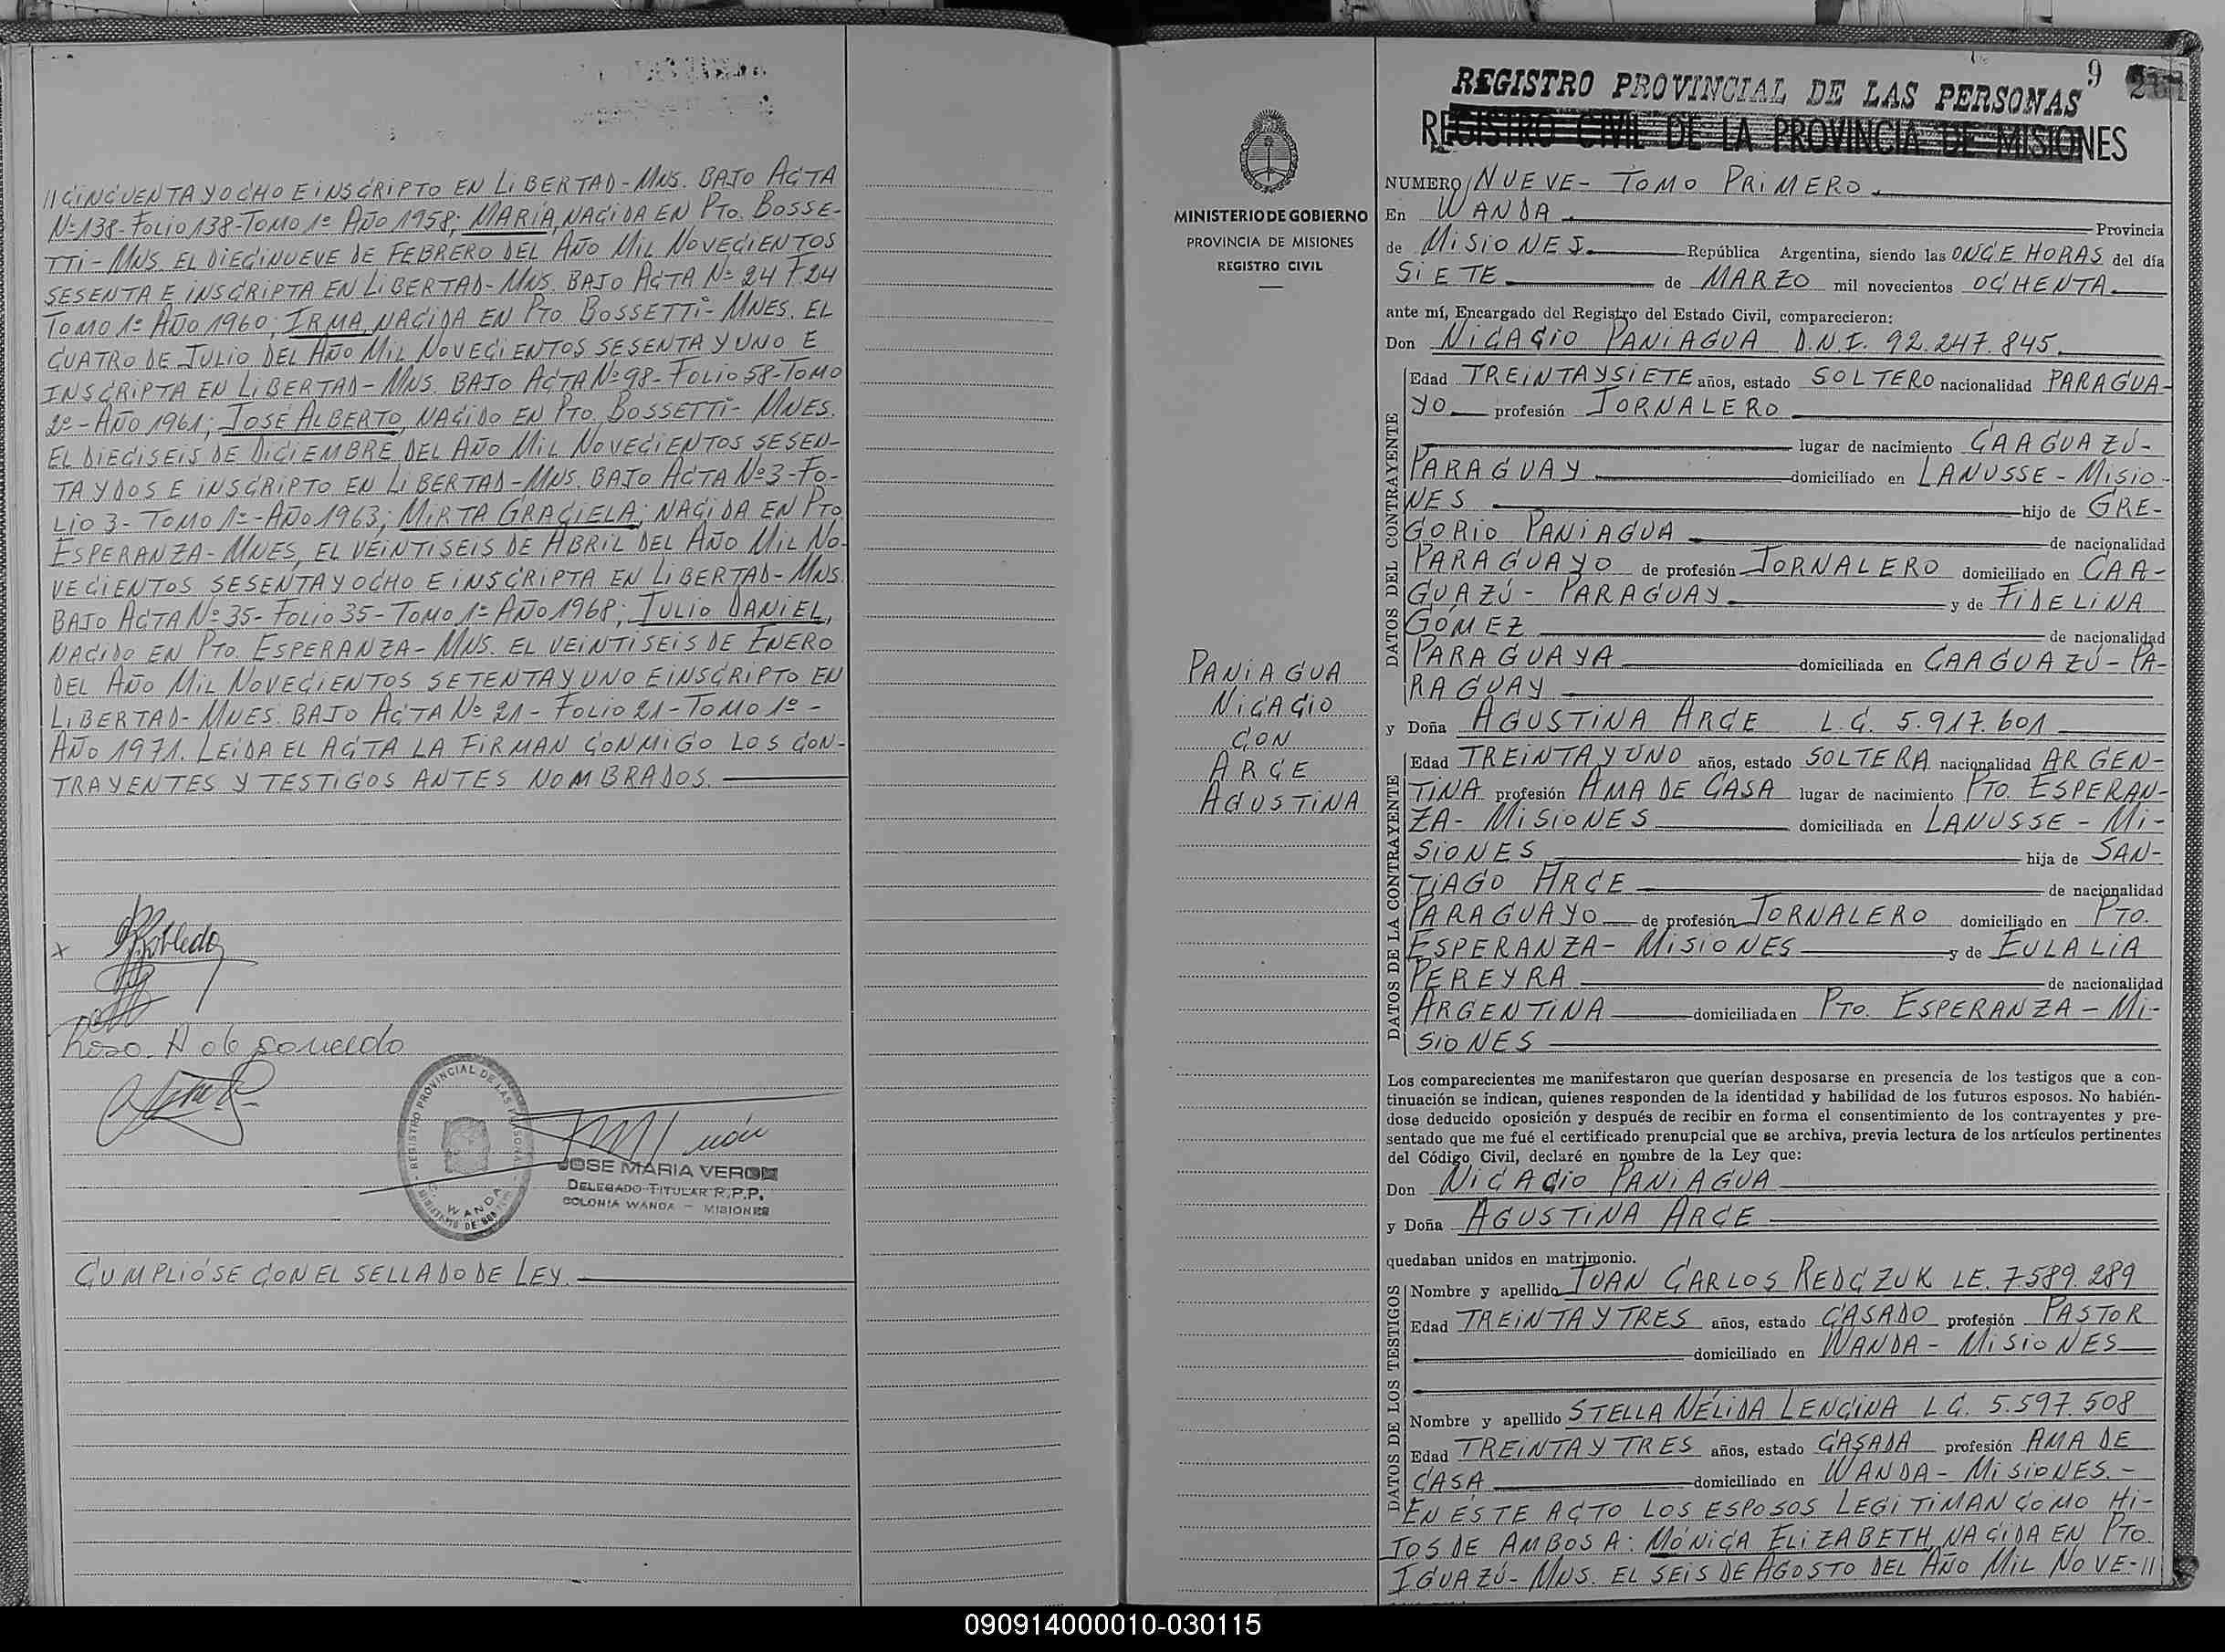 // CINCUENTA Y OCHO E INSCRIPTO EN LIBERTAD-MNS. BAJO ACTA
Nº138-FOLIO 138-TOMO 1º AÑO 1958; MARÍA, NACIDA EN PTO. BOSSE-
TTI-MNS. EL DIECINUEVE DE FEBRERO DEL AÑO MIL NOVECIENTOS
SESENTA E INSCRIPTA EN LIBERTAD-MNS. BAJO ACTA Nº 24 F 24
TOMO 1º AÑO 1960; IRMA, NACIDA EN PTO BOSSETTI-MNES. EL
CUATRO DE JULIO DEL AÑO MIL NOVECIENTOS SESENTA Y UNO E
INSCRIPTA EN LIBERTAD-MNS. BAJO ACTA Nº 98-FOLIO 58-TOMO
2º-AÑO 1961; JOSÉ ALBERTO, NACIDO EN PTO. BOSSETTI-MNES.
EL DIECISEIS DE DICIEMBRE DEL AÑO MIL NOVECIENTOS SESEN-
TA Y DOS E INSCRIPTO EN LIBERTAD-MNS. BAJO ACTA Nº 3-FO-
LIO 3-TOMO 1º-AÑO 1963; MIRTA GRACIELA; NACIDA EN PTO
ESPERANZA-MNES, EL VEINTISEIS DE ABRIL DEL AÑO MIL NO-
VECIENTOS SESENTA Y OCHO E INSCRIPTA EN LIBERTAD-MNS.
BAJO ACTA Nº 35-FOLIO 35-TOMO 1º AÑO 1968; JULIO DANIEL,
NACIDO EN PTO. ESPERANZA-MNS. EL VEINTISEIS DE ENERO
DEL AÑO MIL NOVECIENTOS SETENTA Y UNO E INSCRIPTO EN
LIBERTAD-MNES. BAJO ACTA Nº 21-FOLIO 21-TOMO 1º-
AÑO 1971. LEIDA EL ACTA LA FIRMAN CONMIGO LOS CON-
TRAYENTES Y TESTIGOS ANTES NOMBRADOS.
x Robledo
REGISTRO PROVINCIAL DE LAS PERSONAS
WANDA
JOSE MARIA VERON
DELEGADO TITULAR R.P.P.
COLONIA WANDA - MISIONES
CUMPLIÓSE CON EL SELLADO DE LEY.
MINISTERIO DE GOBIERNO
PROVINCIA DE MISIONES
REGISTRO CIVIL
PANIAGUA
NICACIO
CON
ARCE
AGUSTINA
9
REGISTRO PROVINCIAL DE LAS PERSONAS
REGISTRO CIVIL DE LA PROVINCIA DE MISIONES
NUMERO NUEVE- TOMO PRIMERO.
En WANDA. Provincia
de MISIONES. República Argentina, siendo las ONCE HORAS del día
SIETE de MARZO mil novecientos OCHENTA.
ante mí, Encargado del Registro del Estado Civil, comparecieron:
Don NICACIO PANIAGUA D.N.I. 92.247.845.
DATOS DEL CONTRAYENTE
Edad TREINTA Y SIETE años, estado SOLTERO nacionalidad PARAGUA-
YO profesión JORNALERO
lugar de nacimiento CAAGUAZÚ-
PARAGUAY domiciliado en LANUSSE-MISIO-
NES hijo de GRE-
GORIO PANIAGUA de nacionalidad
PARAGUAYO de profesión JORNALERO domiciliado en CAA-
GUAZÚ- PARAGUAY y de FIDELINA
GÓMEZ de nacionalidad
PARAGUAYA domiciliada en CAAGUAZÚ-PA-
RAGUAY
y Doña AGUSTINA ARCE L.C. 5.917.601
DATOS DE LA CONTRAYENTE
Edad TREINTA Y UNO años, estado SOLTERA nacionalidad ARGEN-
TINA profesión AMA DE CASA lugar de nacimiento PTO. ESPERAN-
ZA- MISIONES domiciliada en LANUSSE-MI-
SIONES hija de SAN-
TIAGO ARCE de nacionalidad
PARAGUAYO de profesión JORNALERO domiciliado en PTO.
ESPERANZA- MISIONES y de EULALIA
PEREYRA de nacionalidad
ARGENTINA domiciliada en PTO. ESPERANZA-MI-
SIONES
Los comparecientes me manifestaron que querían desposarse en presencia de los testigos que a con-
tinuación se indican, quienes responden de la identidad y habilidad de los futuros esposos. No habién-
dose deducido oposición y después de recibir en forma el consentimiento de los contrayentes y pre-
sentado que me fué el certificado prenupcial que se archiva, previa lectura de los artículos pertinentes
del Código Civil, declaré en nombre de la Ley que:
Don NICACIO PANIAGUA
y Doña AGUSTINA ARCE
quedaban unidos en matrimonio.
DATOS DE LOS TESTIGOS
Nombre y apellido JUAN CARLOS REDCZUK LE. 7.589.289
Edad TREINTA Y TRES años, estado CASADO profesión PASTOR
domiciliado en WANDA- MISIONES
Nombre y apellido STELLA NÉLIDA LENCINA L.C. 5.597.508
Edad TREINTA Y TRES años, estado CASADA profesión AMA DE
CASA domiciliado en WANDA- MISIONES.-
EN ÉSTE ACTO LOS ESPOSOS LEGITIMAN COMO HI-
JOS DE AMBOS A: MÓNICA ELIZABETH, NACIDA EN PTO.
IGUAZÚ-MNS. EL SEIS DE AGOSTO DEL AÑO MIL NOVE-//
090914000010-030115